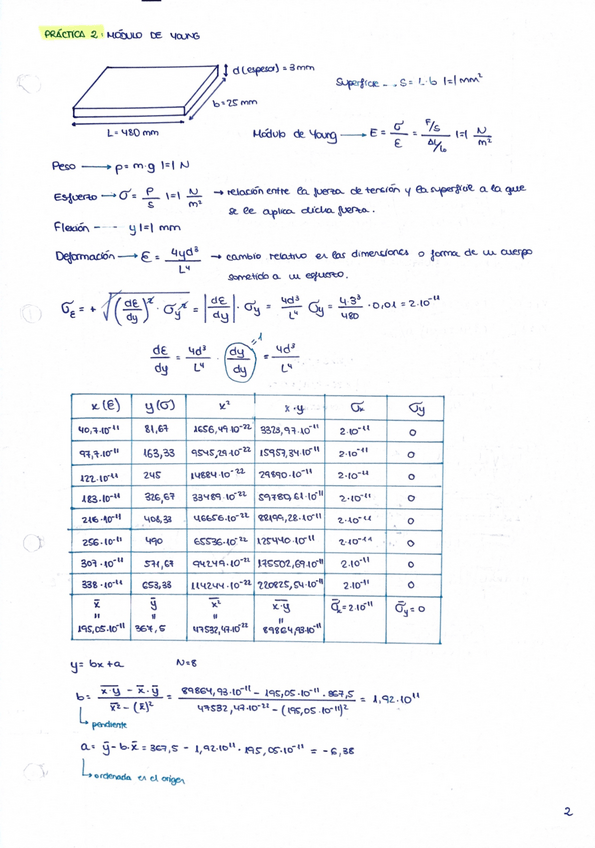 PRÁCTICA 2: MÓDULO DE YOUNG
d (espesor) = 3mm
Superficie --→ S = L·b |=| mm²
b = 25 mm
L = 480 mm
Módulo de Young → E = σ/ε = (F/S)/(ΔL/L₀) |=| N/m²
Peso → p = m·g |=| N
Esfuerzo → σ = P/S |=| N/m² → relación entre la fuerza de tensión y la superficie a la que
se le aplica dicha fuerza.
Flexión ---- y |=| mm
Deformación → ε = 4yd³/L⁴ → cambio relativo en las dimensiones o forma de un cuerpo
sometido a un esfuerzo.
σ_ε = + √((dε/dy)² · σ_y²) = |dε/dy| · σ_y = 4d³/L⁴ σ_y = 4·3³/480 · 0,01 = 2·10⁻¹¹
dε/dy = 4d³/L⁴ · (dy/dy) = 4d³/L⁴
=1
x (ε) y (σ) x² x·y σx σy
40,7·10⁻¹¹ 81,67 1656,49·10⁻²² 3323,97·10⁻¹¹ 2·10⁻¹¹ 0
97,7·10⁻¹¹ 163,33 9545,29·10⁻²² 15957,34·10⁻¹¹ 2·10⁻¹¹ 0
122·10⁻¹¹ 245 14884·10⁻²² 29890·10⁻¹¹ 2·10⁻¹¹ 0
183·10⁻¹¹ 326,67 33489·10⁻²² 59780,61·10⁻¹¹ 2·10⁻¹¹ 0
216·10⁻¹¹ 408,33 46656·10⁻²² 88199,28·10⁻¹¹ 2·10⁻¹¹ 0
256·10⁻¹¹ 490 65536·10⁻²² 125440·10⁻¹¹ 2·10⁻¹¹ 0
307·10⁻¹¹ 571,67 94249·10⁻²² 175502,69·10⁻¹¹ 2·10⁻¹¹ 0
338·10⁻¹¹ 653,33 114244·10⁻²² 220825,54·10⁻¹¹ 2·10⁻¹¹ 0
x̄ ȳ x̄² x̄·y σ̄x = 2·10⁻¹¹ σ̄y = 0
= = = =
195,05·10⁻¹¹ 367,5 47532,47·10⁻²² 89864,93·10⁻¹¹
y = bx + a N = 8
b = (x̄·y − x̄·ȳ)/(x̄² − (x̄)²) = (89864,93·10⁻¹¹ − 195,05·10⁻¹¹·367,5)/(47532,47·10⁻²² − (195,05·10⁻¹¹)²) = 1,92·10¹¹
pendiente
a = ȳ − b·x̄ = 367,5 − 1,92·10¹¹ · 195,05·10⁻¹¹ = −6,38
ordenada en el origen
2